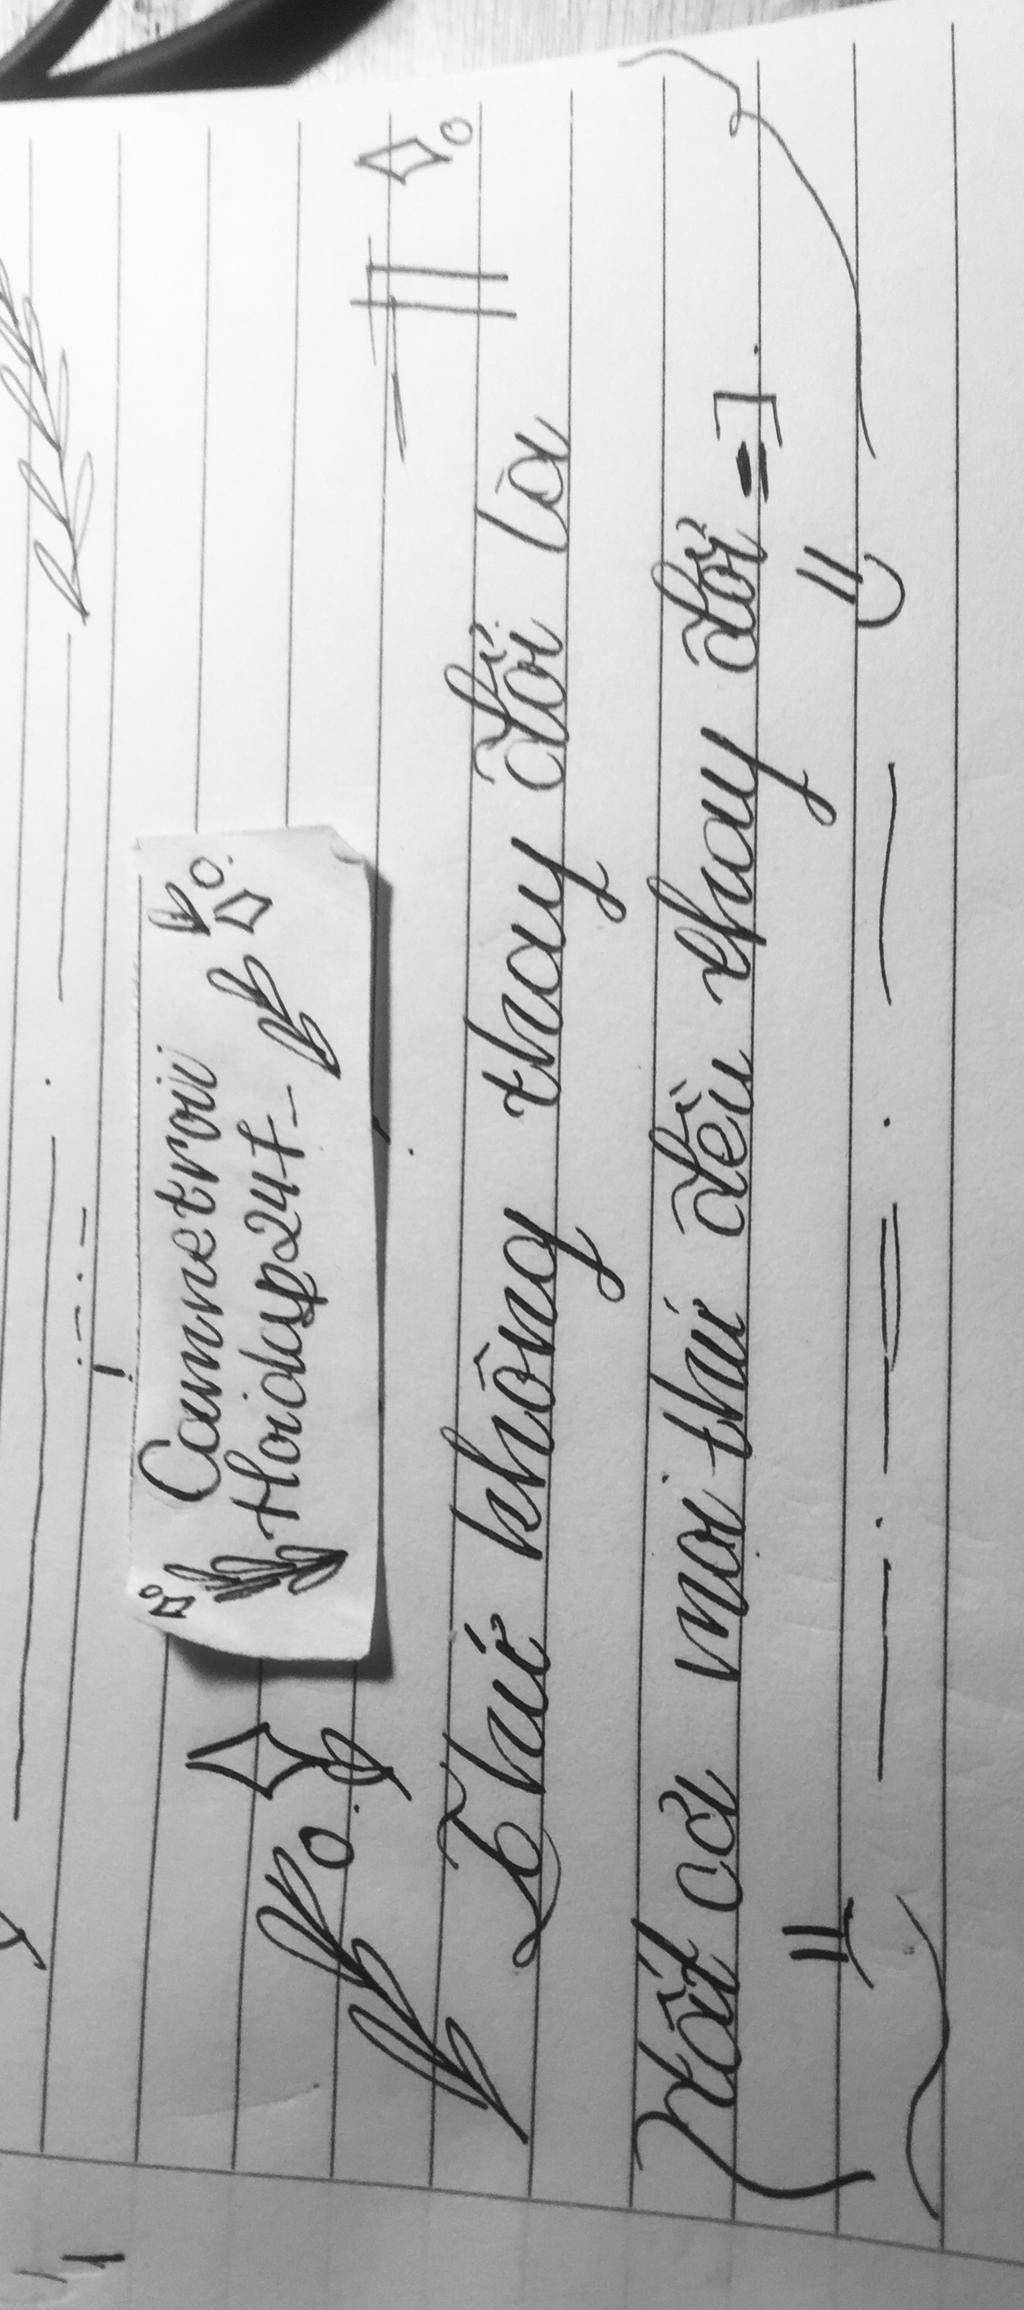 Camnetroii
Hoidap247_
Thứ không thay đổi là
tất cả mọi thứ đều thay đổi =].